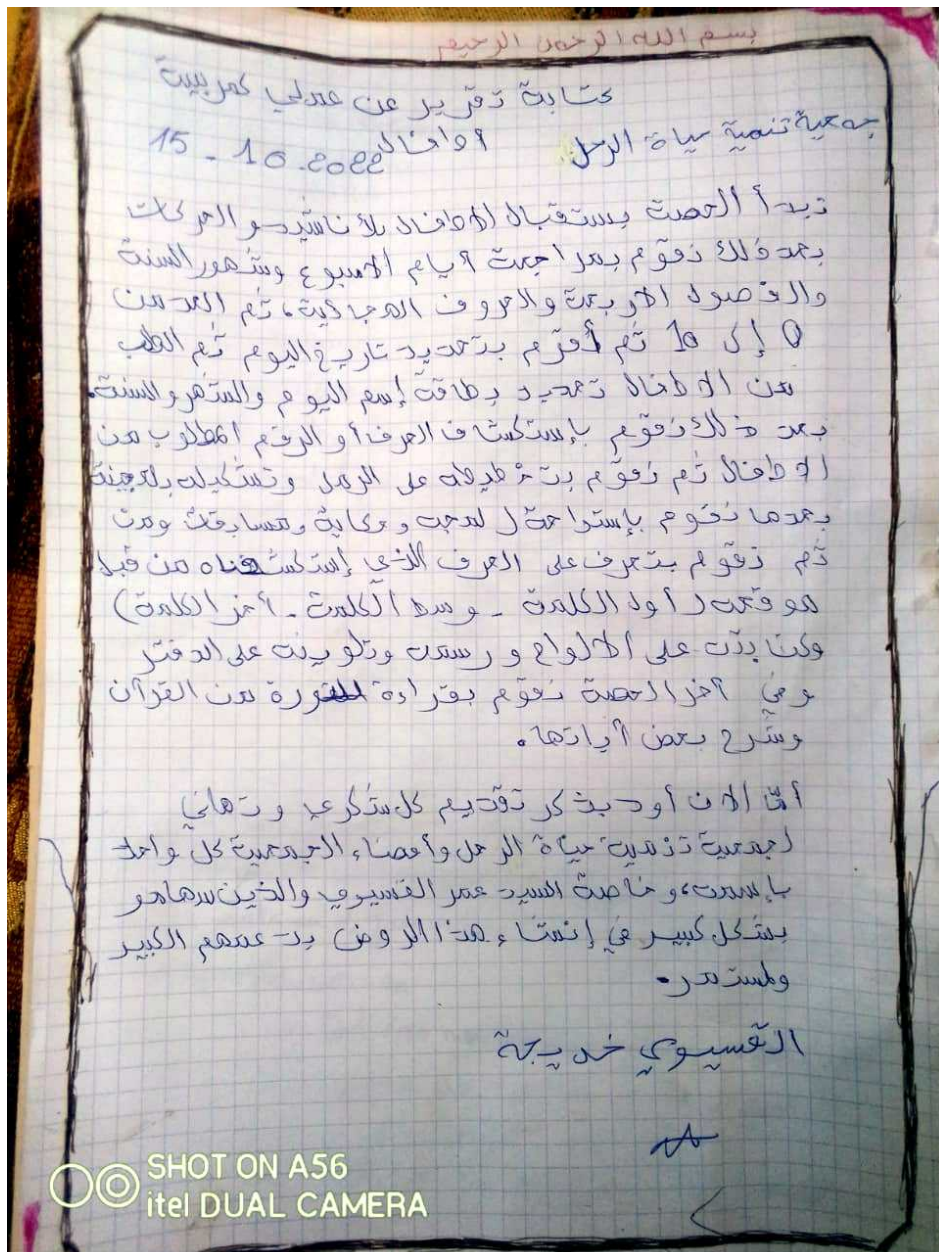 بسم الله الرحمن الرحيم
كتابة تقرير عن عملي كمربية
جمعية تنمية حياة الرحل أطفال 15 - 10 - 2022
تبدأ الحصة بستقبال الاطفال بلأناشيد و الحركات
بعد ذلك نقوم بمراجعة أيام الاسبوع وشهور السنة
والفصول الاربعة والحروف الهجائية، ثم العد من
0 إلى 10 ثم أقوم بتحديد تاريخ اليوم ثم الطلب
من الاطفال تحديد بطاقة إسم اليوم والشهر والسنة.
بعد ذلك نقوم بإستكشاف الحرف أو الرقم المطلوب من
الاطفال ثم نقوم بتخطيطه على الرمل وتشكيله بلعجينة
بعدها نقوم بإستراحة ل لعبه وحكاية ومسابقات ومن
ثم نقوم بتعرف على الحرف الذي إستكشفناه من قبل
موقعه (أول الكلمة - وسط الكلمة - أخر الكلمة)
وكتابته على الالواح و رسمه وتلوينه على الدفتر
وفي أخر الحصة نقوم بقراءة سورة من القرآن
وشرح بعض أياتها.
أمّا الان أود بذكر تقديم كل شكري وتهاني
لجمعية تنمية حياة الرحل وأعضاء الجمعية كل واحد
بإسمه، وخاصة السيد عمر القسيوي والذين ساهمو
بشكل كبير في إنشاء هذا الروض بدعمهم الكبير
ولمستمر.
القسيوي خديجة
SHOT ON A56
itel DUAL CAMERA